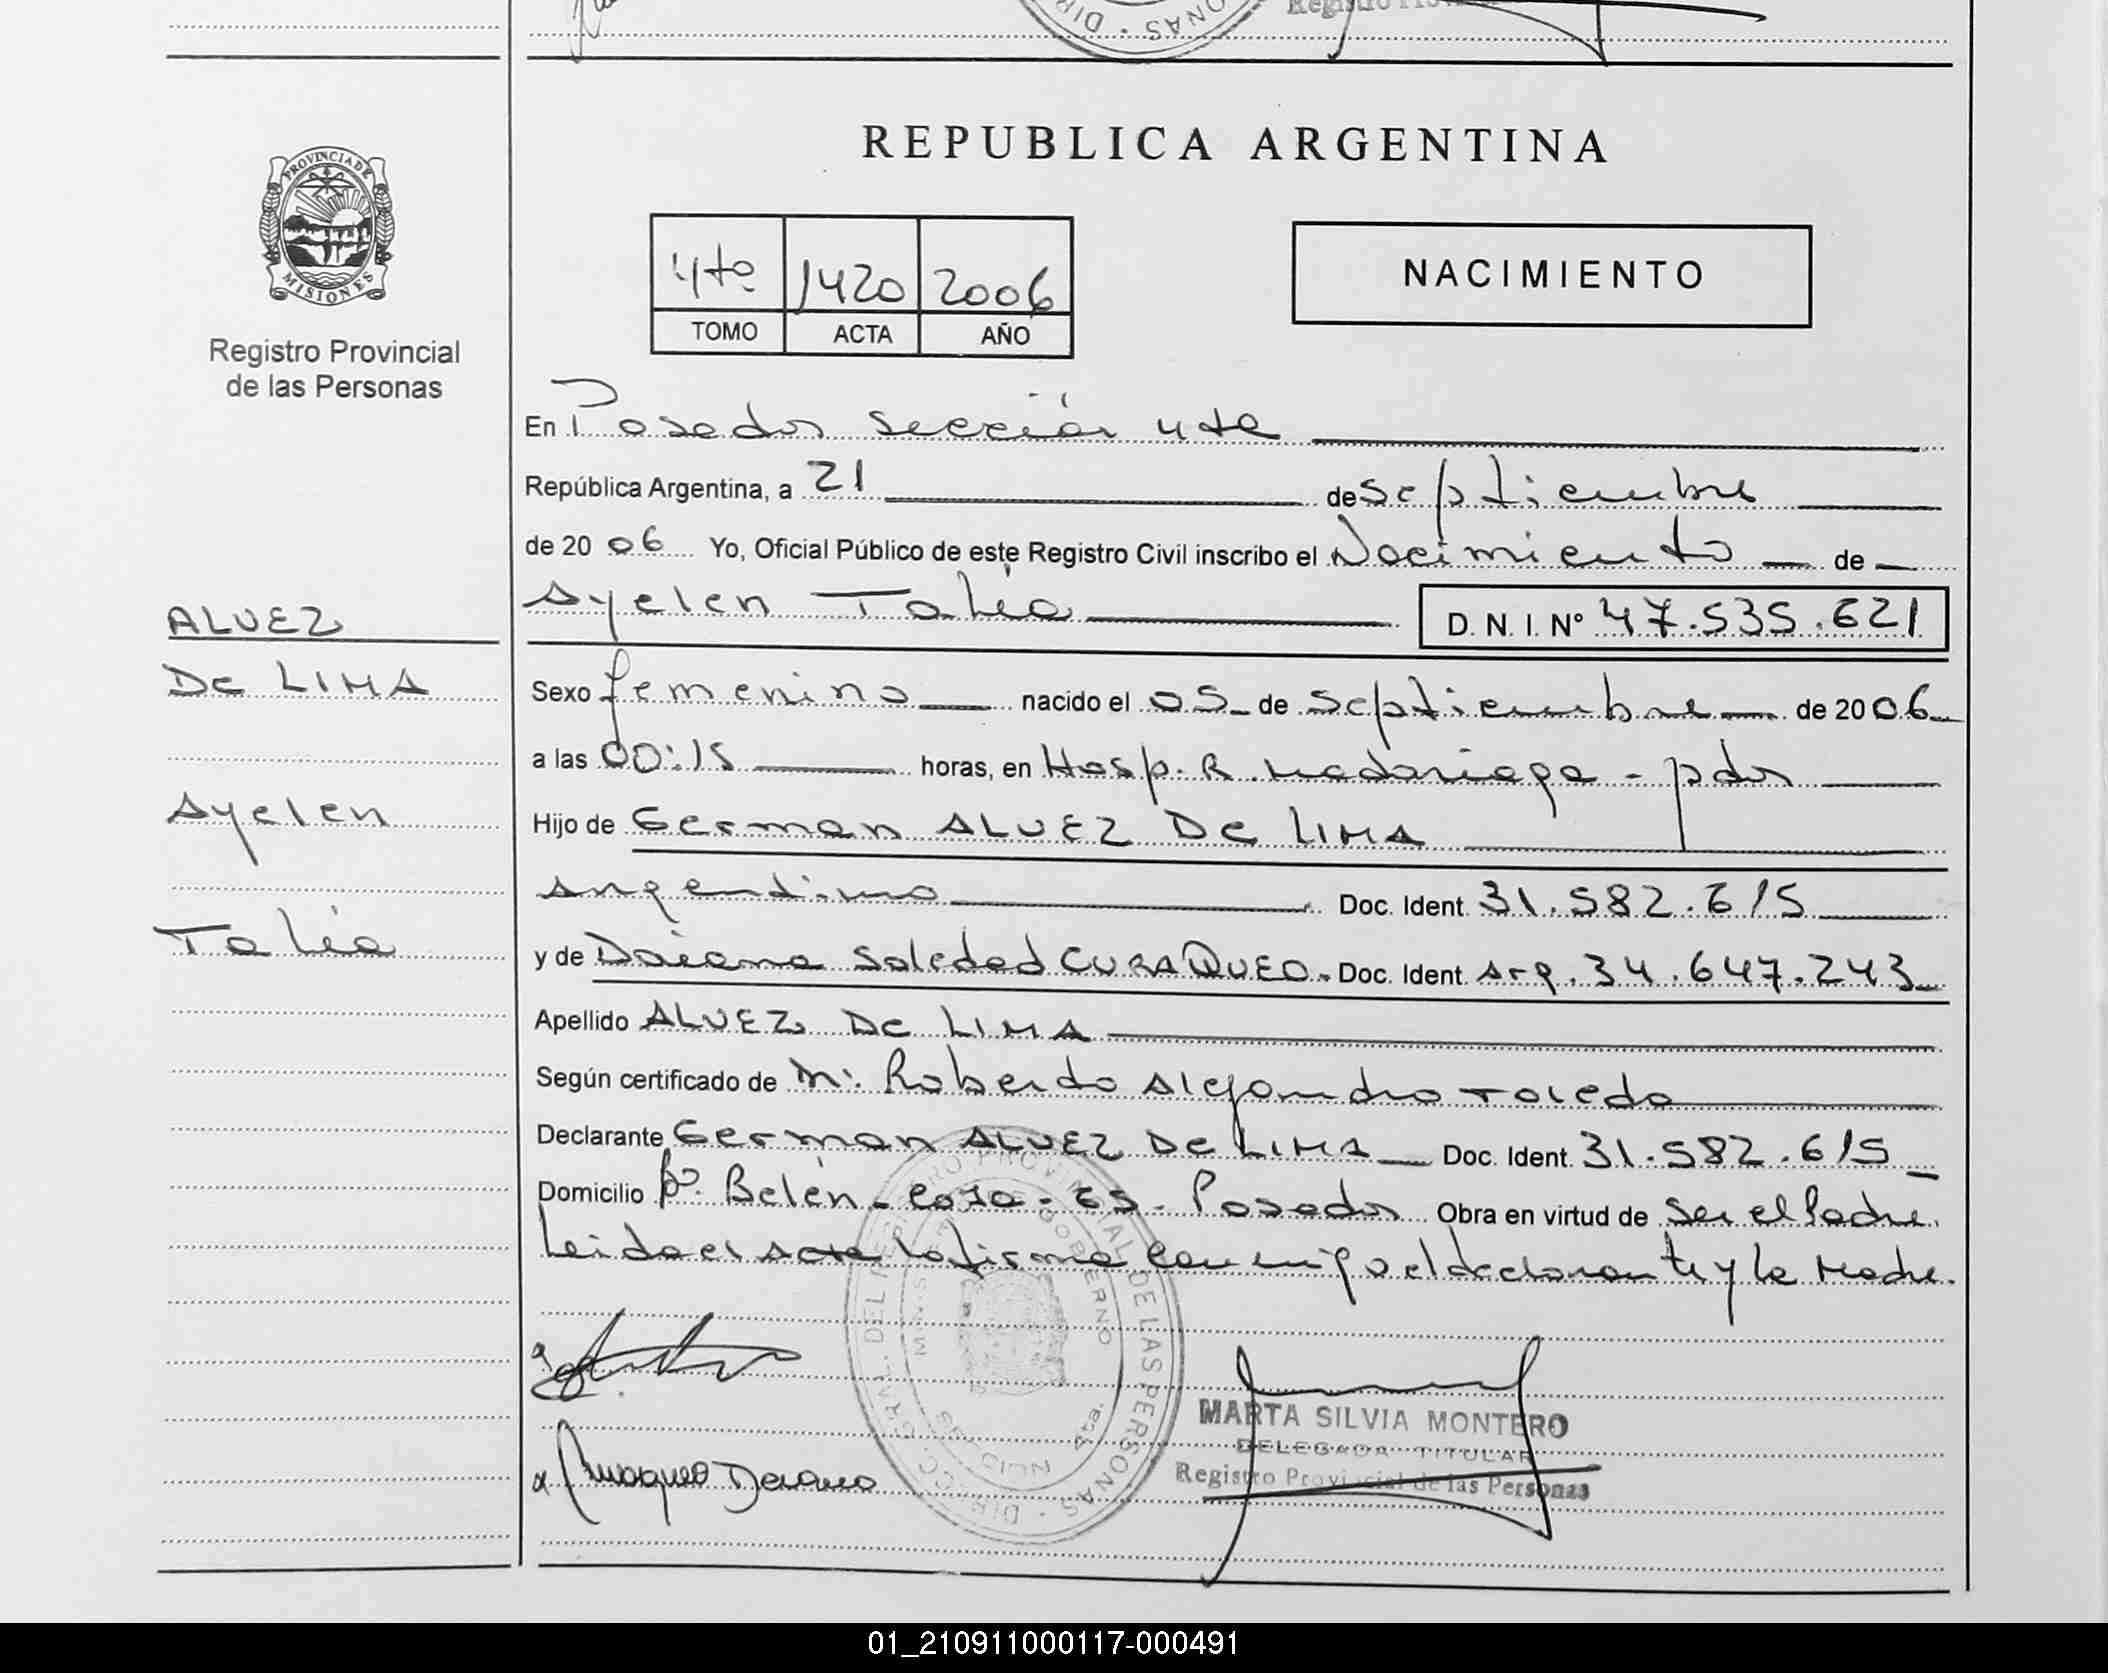 REPUBLICA ARGENTINA
PROVINCIA DE
MISIONES
Registro Provincial
de las Personas
4to 1420 2006
TOMO ACTA AÑO
NACIMIENTO
En Posadas sección 4ta
República Argentina, a 21 de septiembre
de 2006 Yo, Oficial Público de este Registro Civil inscribo el Nacimiento de
Ayelen Talia D. N. I. Nº 47.535.621
ALVEZ
DE LIMA
Ayelen
Talia
Sexo femenino nacido el 05 de septiembre de 2006
a las 00:15 horas, en Hosp. R. Madariaga - pdas
Hijo de German ALVEZ DE LIMA
argentino Doc. Ident. 31.582.615
y de Daiana Soledad CURAQUEO. Doc. Ident. Arg. 34.647.243
Apellido ALVEZ DE LIMA
Según certificado de Roberto Alejandro Toledo
Declarante German ALVEZ DE LIMA Doc. Ident. 31.582.615
Domicilio Bº. Belén - casa - Posadas Obra en virtud de ser el Padre.
Leida el acta la firma conmigo el declarante y la Madre.
MARTA SILVIA MONTERO
DELEGADA TITULAR
Registro Provincial de las Personas
01_210911000117-000491